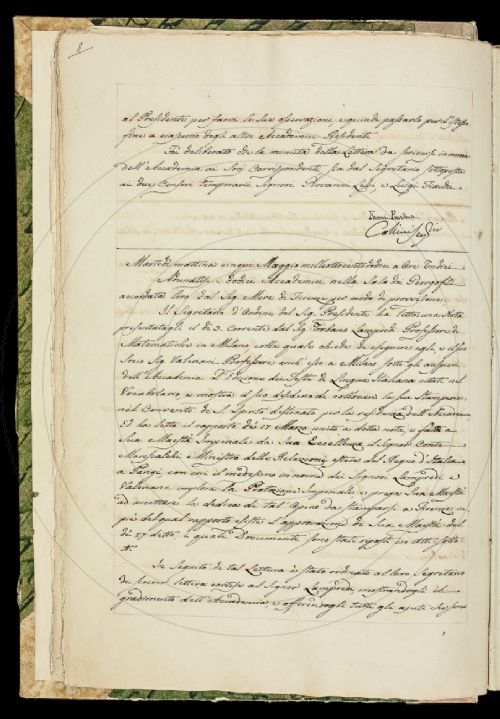 8
al Presidente per farvi le sue osservazioni, e quindi passarlo per l'istesso
fine a ciascuno degli altri Accademici Residenti.
Fù deliberato che la minuta della Lettera da scriversi in nome
dell'Accademia ai Soci Corrispondenti sia dal Segretario sottoposta
ai due Censori temporarii Signori Giovanni Lessi e Luigi Fiacchi.
Collini Seg.rio
Martedì mattina cinque Maggio milleottocentododici a Ore Undici
Adunatisi i Sodici Accademici nella Sala dei Georgofili
accordata loro dal Sig. Mere di Firenze per modo di provvisione
Il Segretario d'Ordine del Sig. Presidente ha letto una Nota
presentatagli il dì 3. Corrente dal Sig. Urbano Lampredi Professore di
Matematiche in Milano colla quale chiede di eseguire egli, e il suo
Socio Sig. Valeriani Professore anch'esso a Milano sotto gli auspici
dell'Accademia l'Edizione dei Testi di Lingua Italiana citati nel
Vocabolario, e mostra il suo desiderio di collocare la sua Stamperia
nel Convento di S. Spirito destinato per la residenza dell'Accademia
Ed ha letto il rapporto del 17 Marzo unito a detta nota, e fatto a
Sua Maestà Imperiale da Sua Eccellenza il Signor Conte
Marescalchi Ministro delle Relazioni estere del Regno d'Italia
a Parigi con cui il medesimo in nome dei Signori Lampredi, e
Valeriani implora la Protezione Imperiale, e prega Sua Maestà
ad accettare la dedica di tal Opera da stamparsi a Firenze, a
piè del qual rapporto esiste l'approvazione di Sua Maestà del
dì 27 detto, i quali Documenti sono stati riposti in Atti sotto
In Seguito di tal Lettura è stato ordinato al loro Segretario
di scriver lettera cortese al Signor Lampredi, mostrandogli il
gradimento dell'Accademia, e offrendogli tutti gli ajuti ch'essa